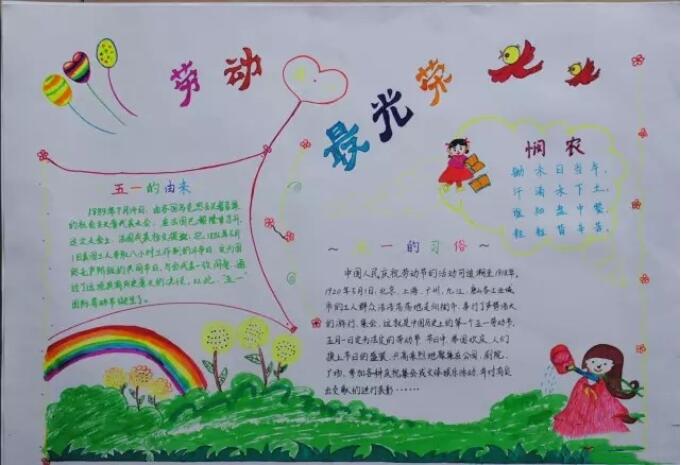 劳动
最光荣
五一的由来
1889年7月14日,由各国马克思主义者召集
的社会主义者代表大会,在法国巴黎隆重召开。
这次大会上,法国代表拉文提议:把1886年5月
1日美国工人争取八小时工作制的斗争日,定为国
际无产阶级的共同节日。与会代表一致同意,通
过了这项具有历史意义的决议。从此,“五一”
国际劳动节诞生了。
悯农
锄禾日当午,
汗滴禾下土。
谁知盘中餐,
粒粒皆辛苦。
～五一的习俗～
中国人民庆祝劳动节的活动可追溯至1918年。
1920年5月1日,北京、上海、广州、九江、唐山各工业城
市的工人群众浩浩荡荡地走向街市、举行了声势浩大
的游行、集会。这就是中国历史上的第一个五一劳动节。
五月一日定为法定的劳动节 节日中,举国欢庆,人们
换上节日的盛装,兴高采烈地聚集在公园、剧院、
广场,参加各种庆祝集会或文体娱乐活动,并对有突
出贡献的进行表彰……